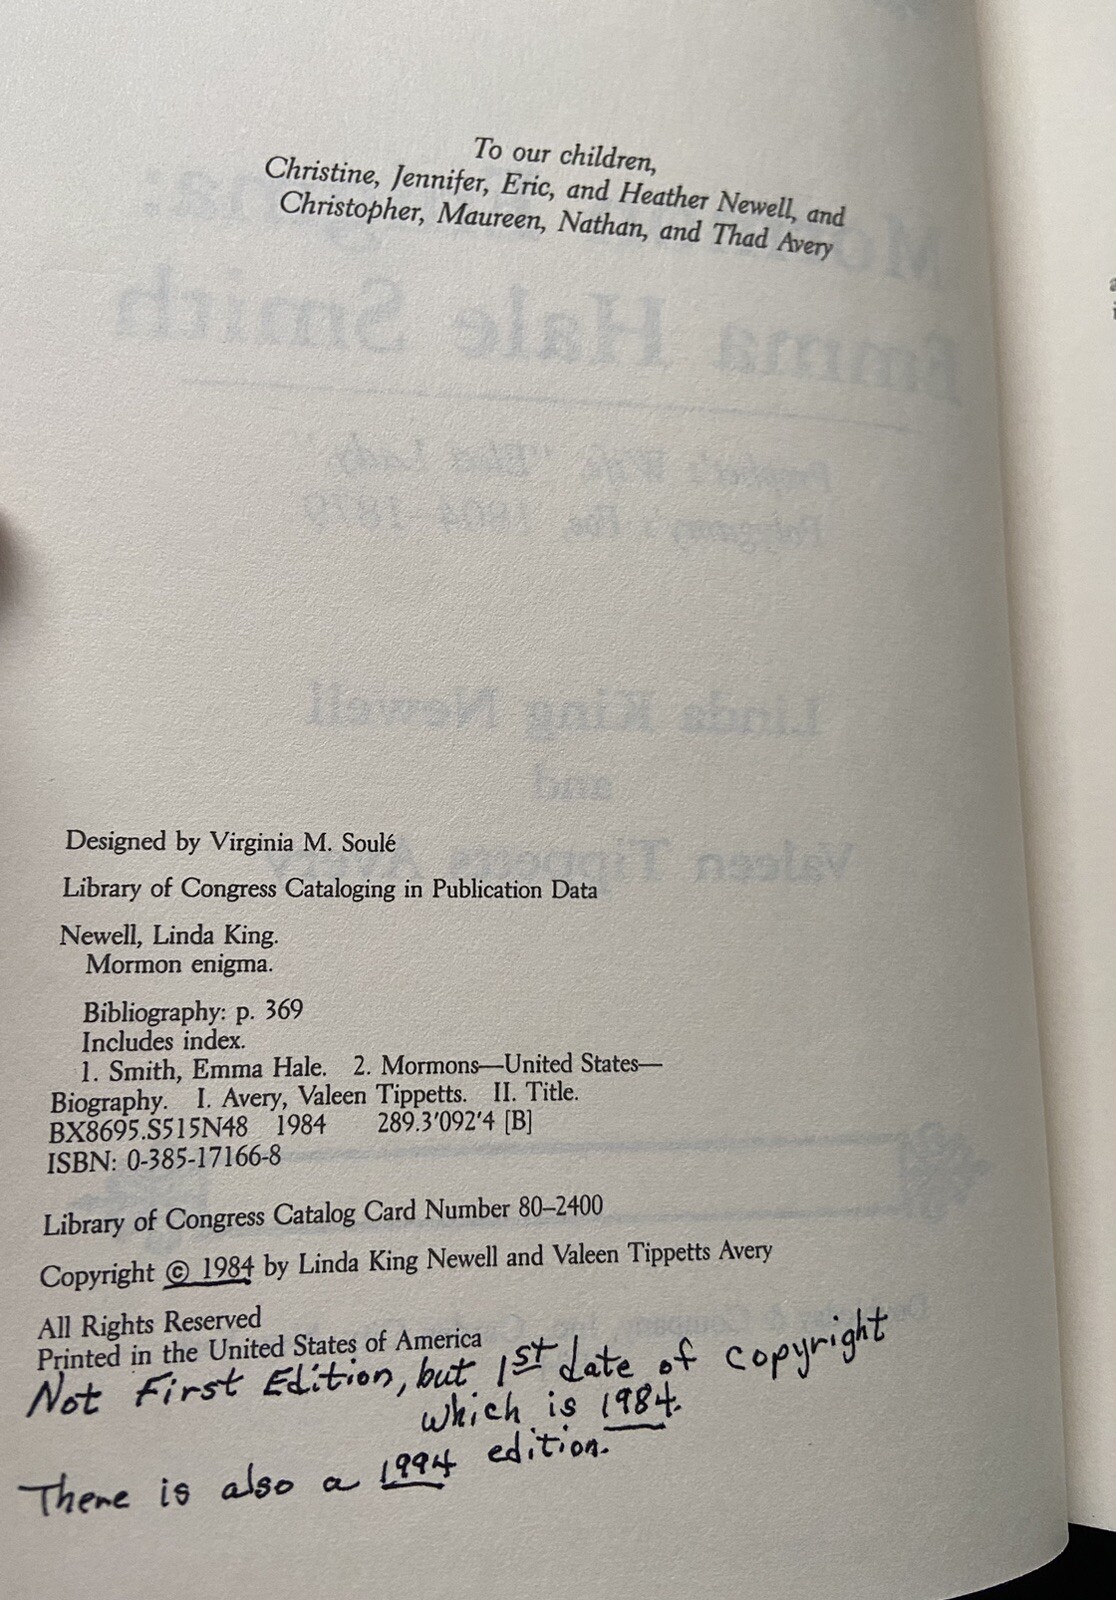 To our children,
Christine, Jennifer, Eric, and Heather Newell, and
Christopher, Maureen, Nathan, and Thad Avery
Emma Hale Smith
Prophet's Wife, "Elect Lady,"
Polygamy's Foe, 1804–1879
Linda King Newell
and
Valeen Tippetts Avery
Designed by Virginia M. Soulé
Library of Congress Cataloging in Publication Data
Newell, Linda King.
Mormon enigma.
Bibliography: p. 369
Includes index.
1. Smith, Emma Hale. 2. Mormons—United States—
Biography. I. Avery, Valeen Tippetts. II. Title.
BX8695.S515N48 1984 289.3′092′4 [B]
ISBN: 0-385-17166-8
Library of Congress Catalog Card Number 80–2400
Copyright © 1984 by Linda King Newell and Valeen Tippetts Avery
All Rights Reserved
Printed in the United States of America
Not First Edition, but 1st date of copyright
which is 1984.
There is also a 1994 edition.